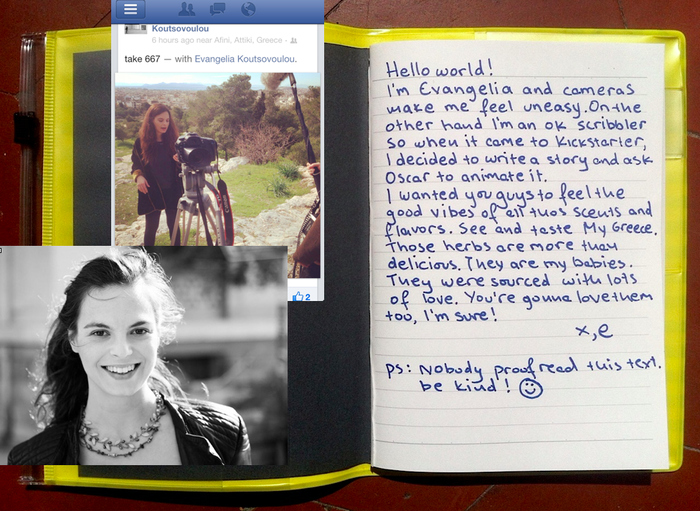 Koutsovoulou
6 hours ago near Afini, Attiki, Greece ·
take 667 — with Evangelia Koutsovoulou.
2
Hello world!
I'm Evangelia and cameras
make me feel uneasy. On the
other hand I'm an ok scribbler
so when it came to Kickstarter,
I decided to write a story and ask
Oscar to animate it.
I wanted you guys to feel the
good vibes of scents and
flavors. See and taste My Greece.
Those herbs are more than
delicious. They are my babies.
They were sourced with lots
of love. You're gonna love them
too, I'm sure!
x,e
ps: Nobody proofread this text.
be kind!